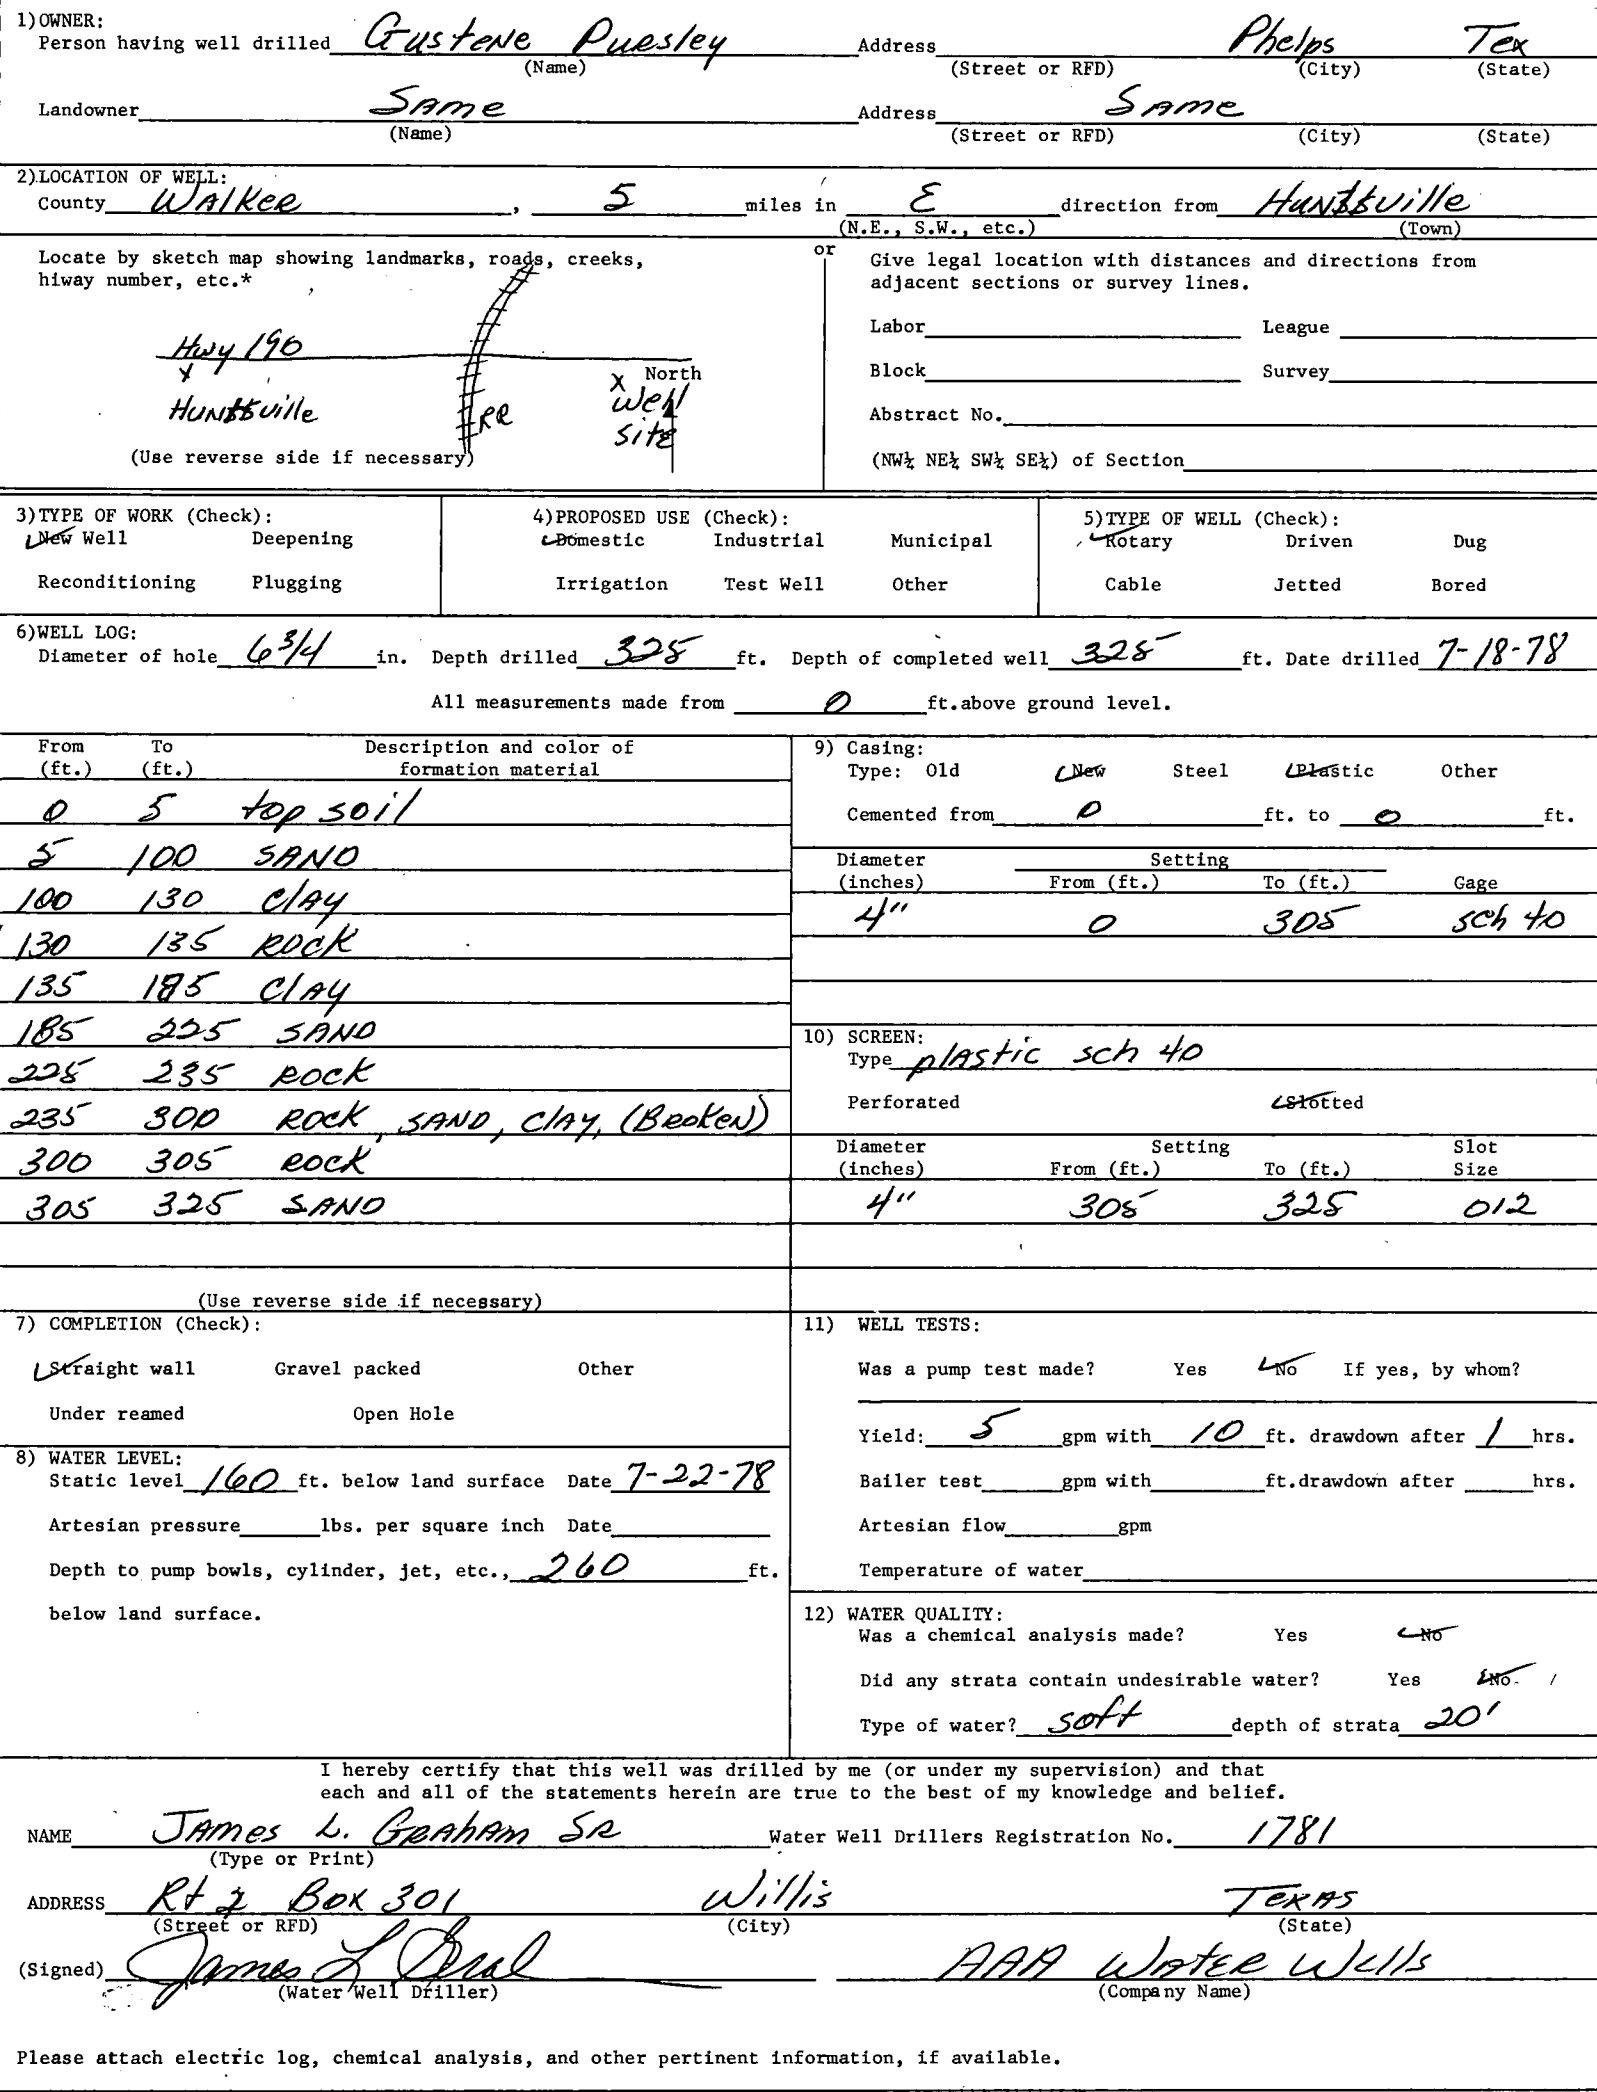 1) OWNER:
Person having well drilled Gustene Puesley Address Phelps Tex
(Name) (Street or RFD) (City) (State)
Landowner Same Address Same
(Name) (Street or RFD) (City) (State)
2) LOCATION OF WELL:
County Walker, 5 miles in E direction from Huntsville
(N.E., S.W., etc.) (Town)
Locate by sketch map showing landmarks, roads, creeks,
hiway number, etc.*
Hwy 190
X
Huntsville
RR
North
X
Well
site
(Use reverse side if necessary)
or
Give legal location with distances and directions from
adjacent sections or survey lines.
Labor League
Block Survey
Abstract No.
(NW¼ NE¼ SW¼ SE¼) of Section
3) TYPE OF WORK (Check):
New Well Deepening
Reconditioning Plugging
4) PROPOSED USE (Check):
Domestic Industrial Municipal
Irrigation Test Well Other
5) TYPE OF WELL (Check):
Rotary Driven Dug
Cable Jetted Bored
6) WELL LOG:
Diameter of hole 6 3/4 in. Depth drilled 325 ft. Depth of completed well 325 ft. Date drilled 7-18-78
All measurements made from 0 ft. above ground level.
From To Description and color of
(ft.) (ft.) formation material
0 5 top soil
5 100 SAND
100 130 Clay
130 135 Rock
135 185 Clay
185 225 SAND
225 235 Rock
235 300 Rock, SAND, Clay, (Broken)
300 305 Rock
305 325 SAND
(Use reverse side if necessary)
9) Casing:
Type: Old New Steel Plastic Other
Cemented from 0 ft. to 0 ft.
Diameter Setting
(inches) From (ft.) To (ft.) Gage
4" 0 305 sch 40
10) SCREEN:
Type plastic sch 40
Perforated Slotted
Diameter Setting Slot
(inches) From (ft.) To (ft.) Size
4" 305 325 012
7) COMPLETION (Check):
Straight wall Gravel packed Other
Under reamed Open Hole
8) WATER LEVEL:
Static level 160 ft. below land surface Date 7-22-78
Artesian pressure lbs. per square inch Date
Depth to pump bowls, cylinder, jet, etc., 260 ft.
below land surface.
11) WELL TESTS:
Was a pump test made? Yes No If yes, by whom?
Yield: 5 gpm with 10 ft. drawdown after 1 hrs.
Bailer test gpm with ft. drawdown after hrs.
Artesian flow gpm
Temperature of water
12) WATER QUALITY:
Was a chemical analysis made? Yes No
Did any strata contain undesirable water? Yes No
Type of water? soft depth of strata 20'
I hereby certify that this well was drilled by me (or under my supervision) and that
each and all of the statements herein are true to the best of my knowledge and belief.
NAME James L. Graham SR Water Well Drillers Registration No. 1781
(Type or Print)
ADDRESS Rt 2 Box 301 Willis Texas
(Street or RFD) (City) (State)
(Signed) James L Gral AAA Water Wells
(Water Well Driller) (Company Name)
Please attach electric log, chemical analysis, and other pertinent information, if available.